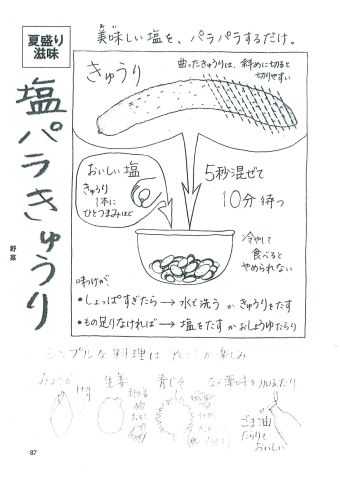 夏盛り
滋味
塩パラきゅうり
野菜
美味しい塩を、パラパラするだけ。
きゅうり
曲ったきゅうりは、斜めに切ると
切りやすい
おいしい塩
きゅうり
1本に
ひとつまみほど
5秒混ぜて
10分待つ
冷やして
食べると
やめられない
味わけが、
・しょっぱすぎたら→水で洗うかきゅうりをたす
・もの足りなければ→塩をたすかおしょうゆたらり
シンプルな料理は アレンジが楽しみ
みょうが
生姜
青じそ
など薬味を加えたり
ごま油
たらりで
おいしい
87